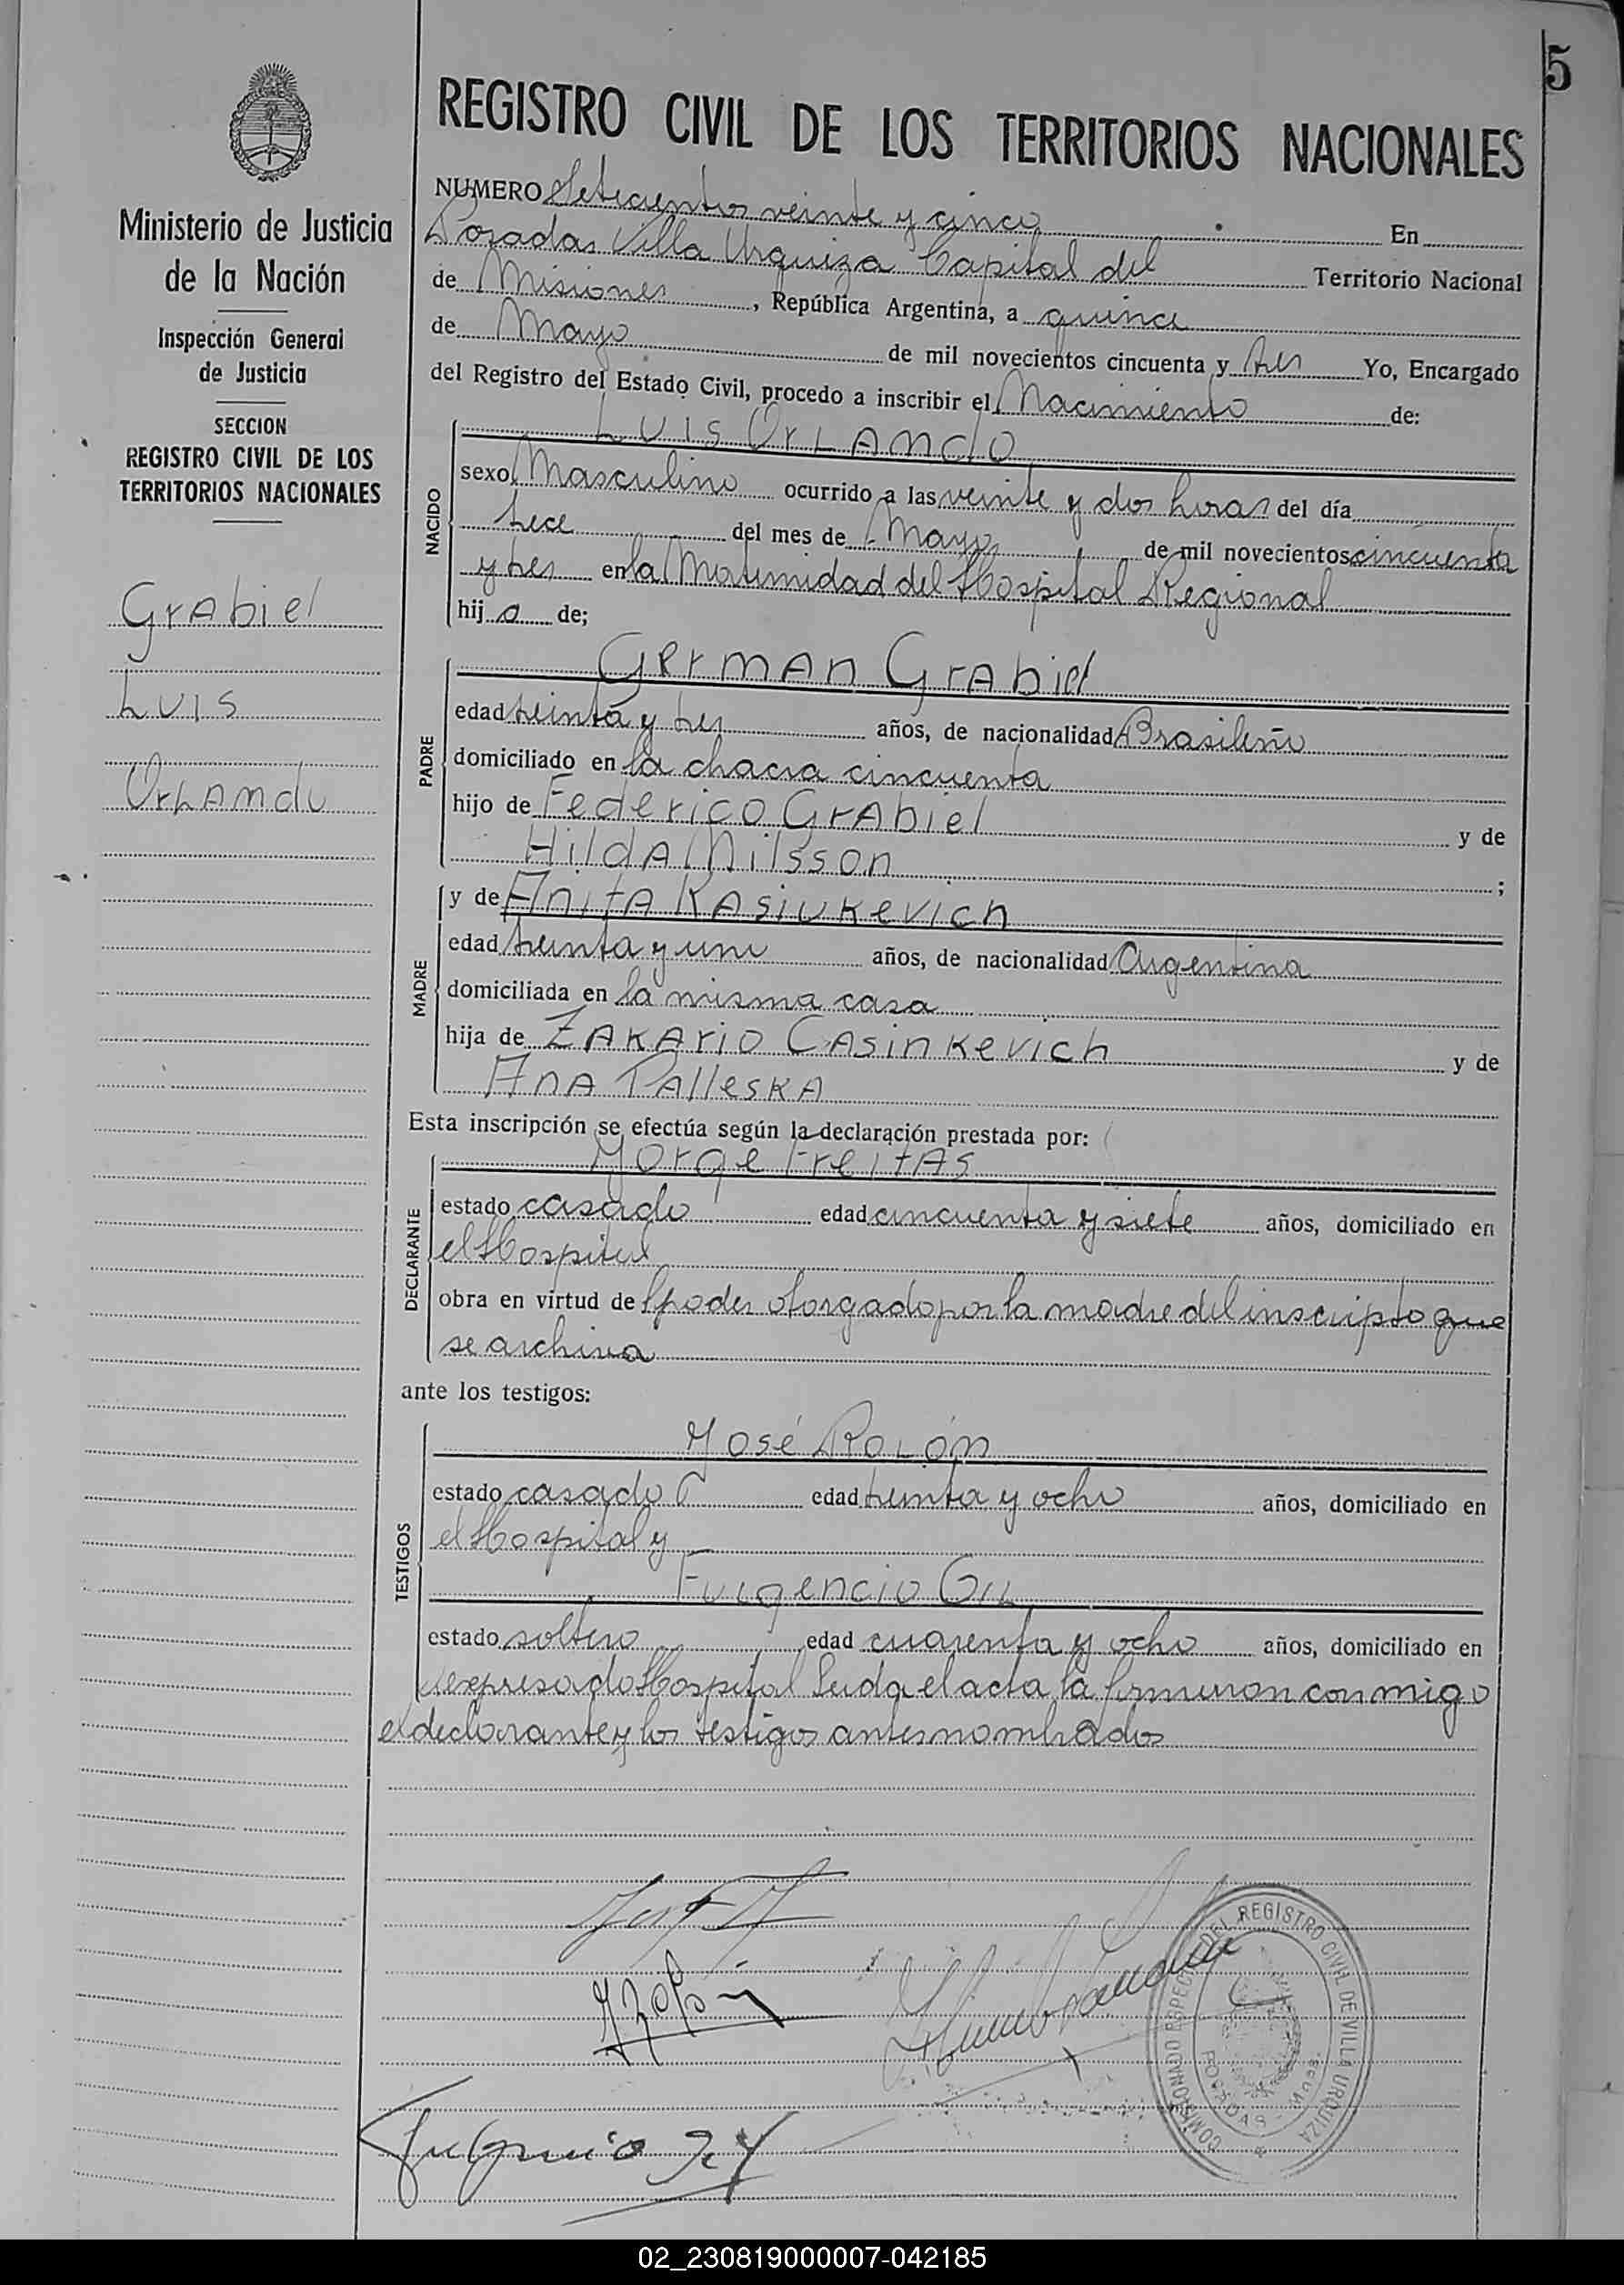 5
REGISTRO CIVIL DE LOS TERRITORIOS NACIONALES
Ministerio de Justicia
de la Nación
Inspección General
de Justicia
SECCION
REGISTRO CIVIL DE LOS
TERRITORIOS NACIONALES
Grabiel
Luis
Orlando
NUMERO Setecientos veinte y cinco En
Posadas Villa Urquiza Capital del Territorio Nacional
de Misiones, República Argentina, a quince
de Mayo de mil novecientos cincuenta y tres Yo, Encargado
del Registro del Estado Civil, procedo a inscribir el Nacimiento de:
NACIDO
Luis Orlando
sexo Masculino ocurrido a las veinte y dos horas del día
trece del mes de Mayo de mil novecientos cincuenta
y tres en la Maternidad del Hospital Regional
hijo de;
PADRE
German Grabiel
edad treinta y tres años, de nacionalidad Brasileño
domiciliado en la chacra cincuenta
hijo de Federico Grabiel y de
Hilda Nilsson ;
MADRE
y de Anita Kasiukevich
edad treinta y uno años, de nacionalidad Argentina
domiciliada en la misma casa
hija de Zakario Casinkevich y de
Ana Palleska
Esta inscripción se efectúa según la declaración prestada por:
DECLARANTE
Jorge Freitas
estado casado edad cincuenta y siete años, domiciliado en
el Hospital
obra en virtud del poder otorgado por la madre del inscripto que
se archiva
ante los testigos:
TESTIGOS
José Rolón
estado casado edad treinta y ocho años, domiciliado en
el Hospital y
Fulgencio Gil
estado soltero edad cuarenta y ocho años, domiciliado en
el expresado Hospital Leida el acta la firmaron conmigo
el declarante y los testigos antes nombrados
Fulgencio Gil
DEL REGISTRO CIVIL DE VILLA URQUIZA
POSADAS - Mnes.
02_230819000007-042185